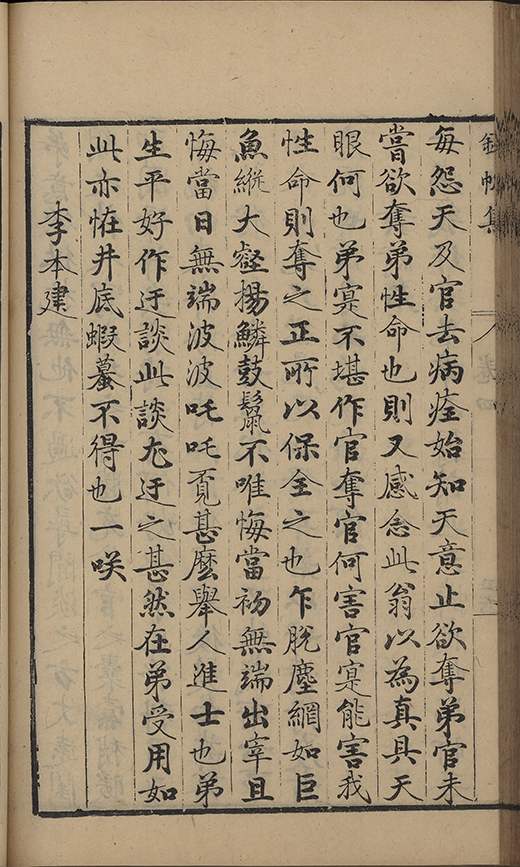 錦帆集
卷四
每怨天及官去病痊始知天意止欲奪弟官未
嘗欲奪弟性命也則又感念此翁以為真具天
眼何也弟寔不堪作官奪官何害官寔能害我
性命則奪之正所以保全之也乍脫塵網如巨
魚縱大壑揚鱗鼓鬣不唯悔當初無端出宰且
悔當日無端波波吒吒覔甚麽舉人進士也弟
生平好作迂談此談尤迂之甚然在弟受用如
此亦恠井底蝦蟇不得也一咲
李本建